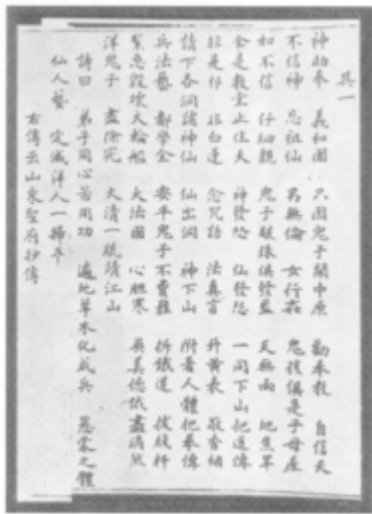 其一
神助拳 義和團 只因鬼子鬧中原 勸奉教 自信天
不信神 忘祖仙 男無倫 女行姦 鬼孩俱是子母產
如不信 仔細觀 鬼子眼珠俱發藍 天無雨 地焦旱
全是教堂止住天 神發怒 仙發怒 一同下山把道傳
非是邪 非白蓮 念咒語 法真言 升黃表 敬香烟
請下各洞諸神仙 仙出洞 神下山 附着人體把拳傳
兵法藝 都學全 要平鬼子不費難 拆鐵道 拔線杆
緊急毀壞火輪船 大法國 心胆寒 英美德俄盡消然
洋鬼子 盡除完 大清一統靖江山
詩曰 弟子同心苦用功 遍地草木化成兵 愚蒙之體
仙人藝 定滅洋人一掃平
右傳云山東聖府抄傳